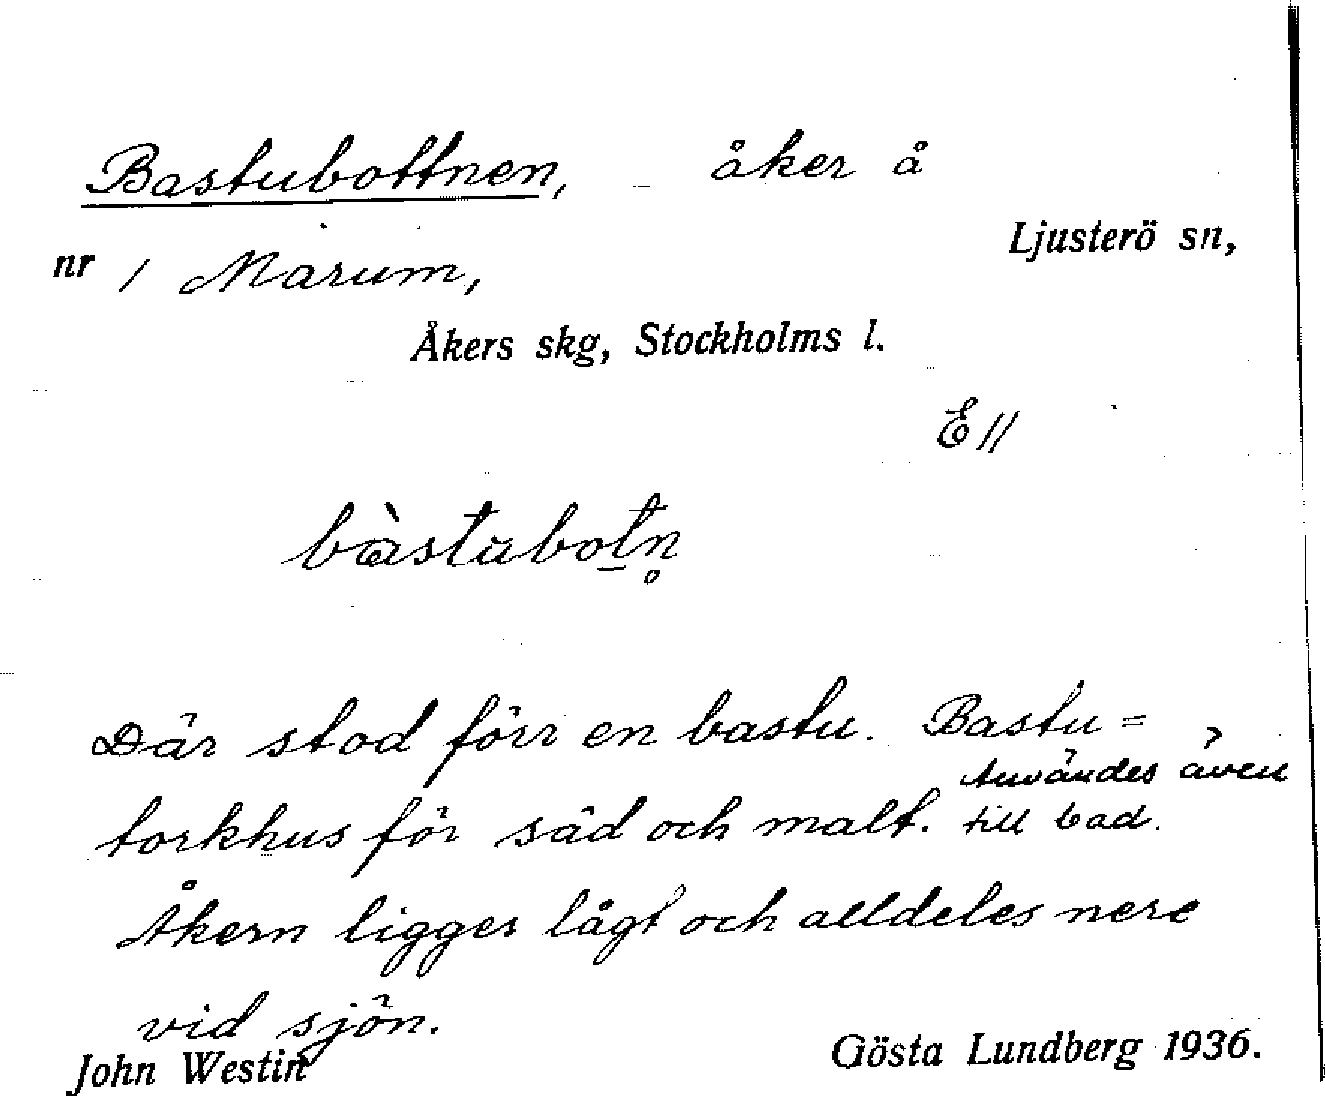 Bastubottnen, åker å
Ljusterö sn,
nr 1 Marum,
Åkers skg, Stockholms l.
E 11
bàstubotn̥
Där stod förr en bastu. Bastu =
torkhus för säd och malt. Användes även
till bad.
Åkern ligger lågt och alldeles nere
vid sjön.
John Westin
Gösta Lundberg 1936.